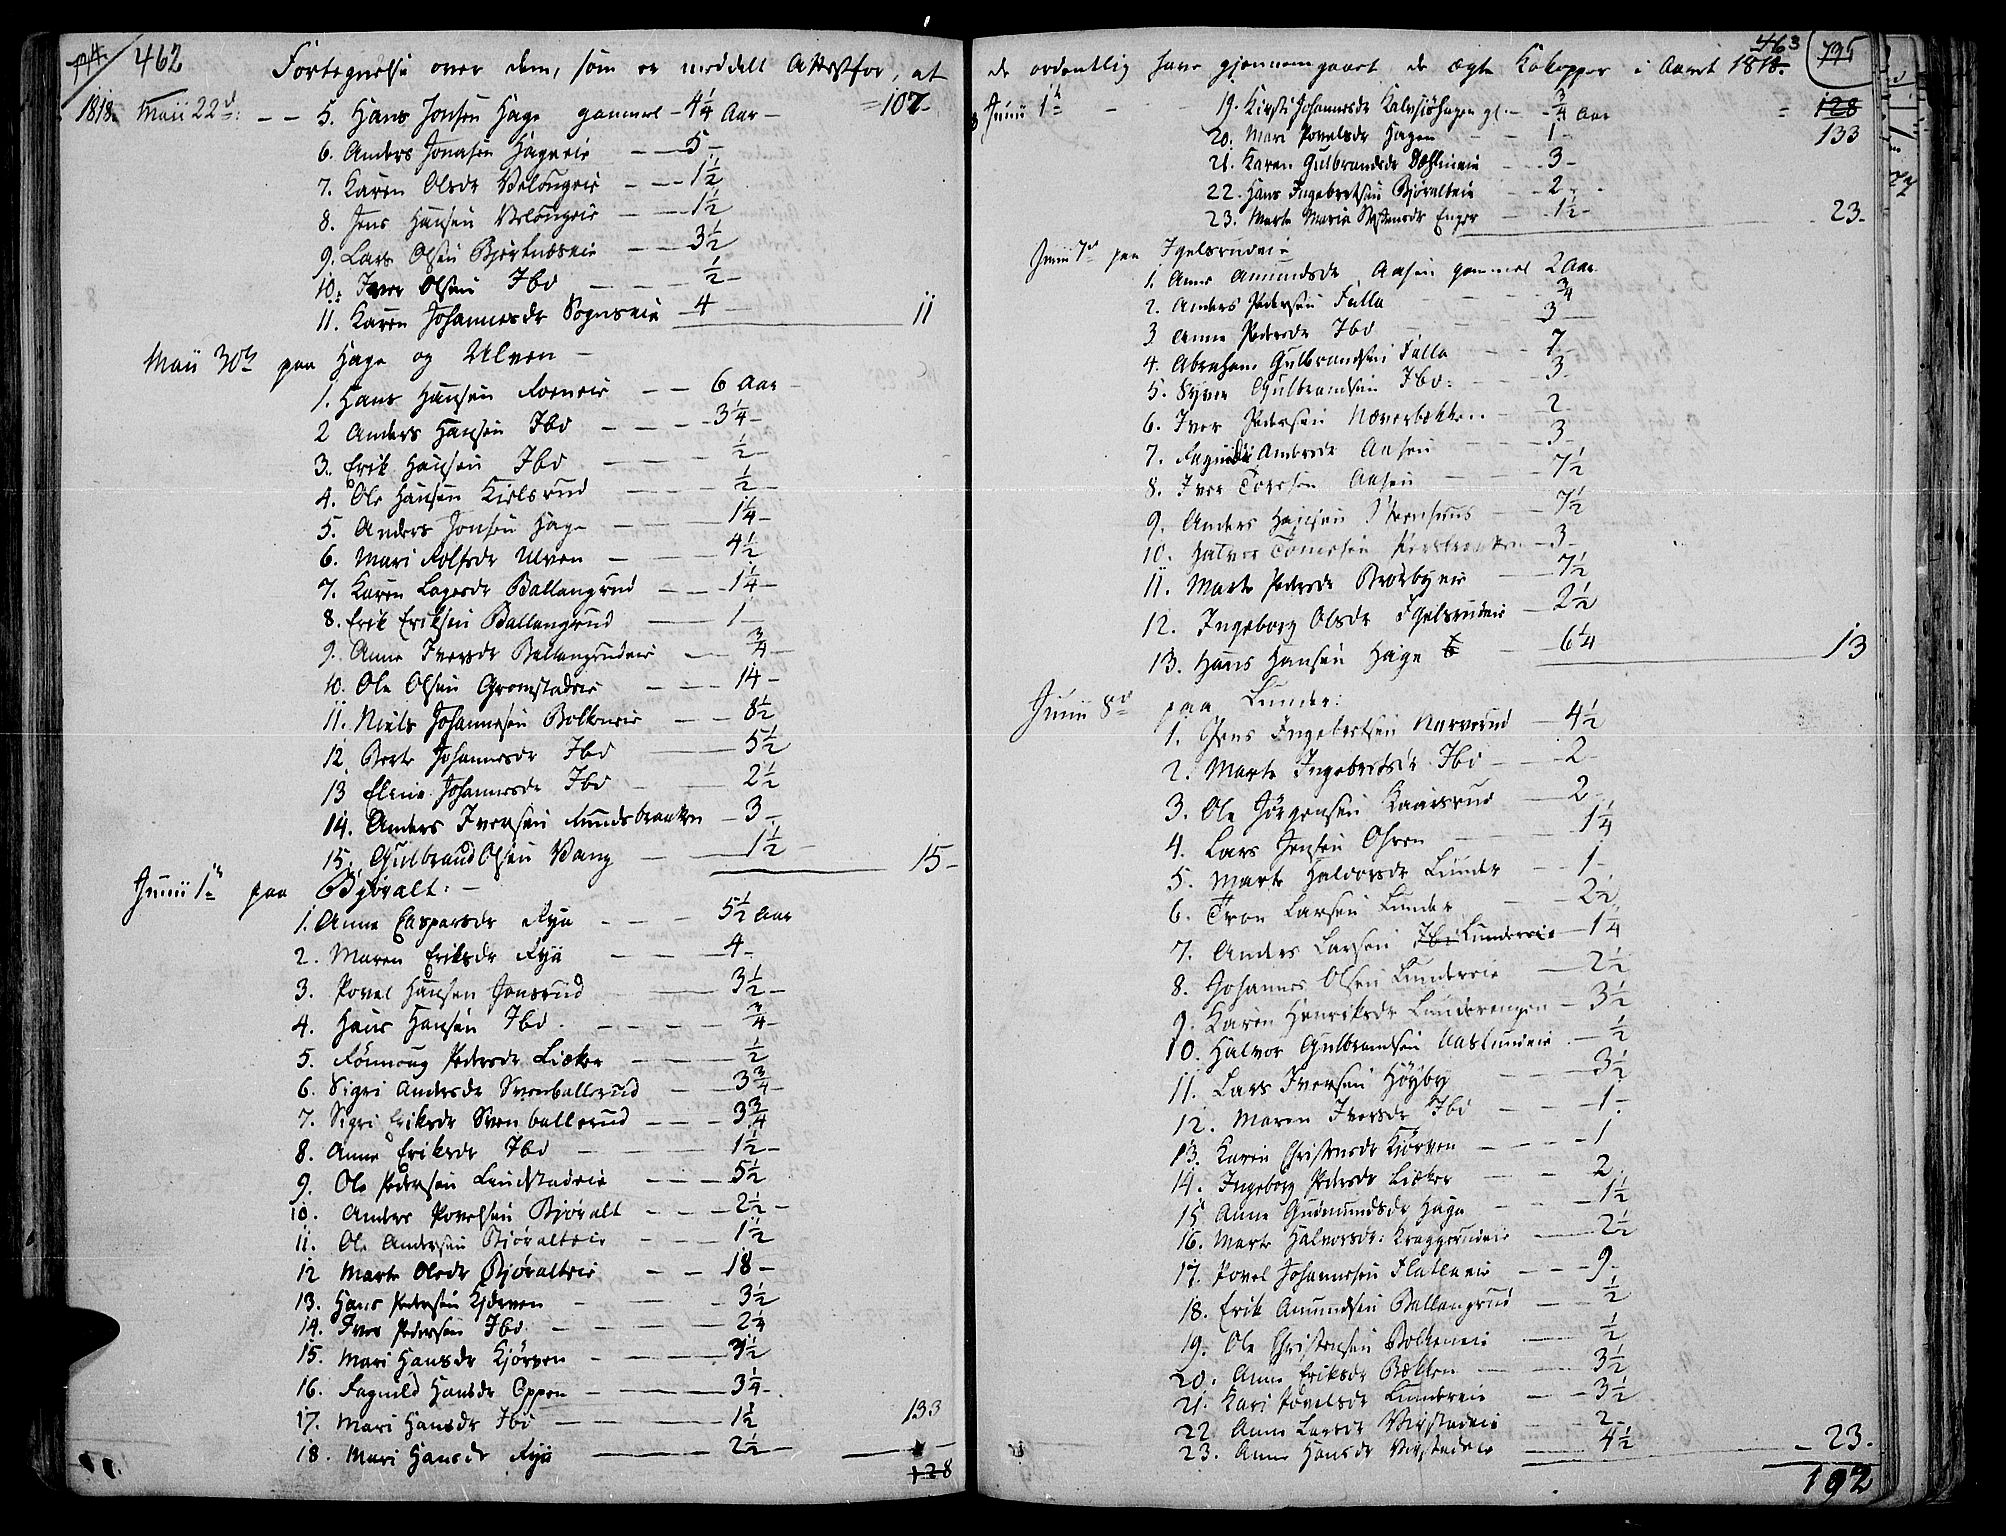 462
Fortegnelse over dem, som er meddelt Attest for, at
1818. Maii 22d: - - 5. Hans Jonsen Hage gammel - 4 1/4 Aar - = 107 -
6. Anders Jonasen Hageeie - - 5 -
7. Karen Olsdr Velougeie - - 1 1/2
8. Jens Hansen Velougeie - - 1 1/2
9. Lars Olsen Bjertnæseie - - 3 1/2
10. Iver Olsen Ibd - - - 1/2 -
11. Karen Johannesdr Sognseie - 4 - 11
Maii 30te paa Hage og Ulven -
1. Hans Hansen Foeneie - - 6 Aar -
2 Anders Hansen Ibd - - - 3 1/4 -
3. Erik Hansen Ibd - - - 1/2 -
4. Ole Hansen Kielsrud - - - 1/2 -
5. Anders Jonsen Hage - - - 1 1/4 -
6. Mari Rolfsdr Ulven - - - 4 1/2
7. Karen Lagesdr Ballangrud - - - 1 1/4 -
8. Erik Eriksen Ballangrud - - - 1 -
9. Anne Iversdr Ballangrudeie - - 3/4 -
10. Ole Olsen Gromstadeie - - - 14 -
11. Niels Johannesen Bolkeneie - - 8 1/2
12 Berte Johannesdr Ibd - - - 5 1/2
13 Elene Johannesdr Ibd - - - 2 1/2
14. Anders Iversen Lundsbraaten - 3 -
15. Gulbrand Olsen Vang - - - 1 1/2 - 15 -
Junii 1te paa Bjøralt: -
1. Anne Caspersdr Rya - - - 5 1/2 Aar
2. Maren Eriksdr Rya - - - 4 -
3. Povel Hansen Jonsrud - - - 3 1/2 -
4. Hans Hansen Ibd - - - - 3/4 -
5. Rønnoug Pedersdr Lieker - - - 1/2 -
6. Sigri Andersdr Svenballerud - - - 3 3/4 -
7. Sigri Eriksdr Svenballerud - - - 3 3/4
8. Anne Eriksdr Ibd - - - - 1 1/2 -
9. Ole Pedersen Lundstadeie - - - 5 1/2
10. Anders Povelsen Bjøralt - - - 2 1/2 -
11. Ole Andersen Bjøralteie - - - 1 1/2
12 Marte Olsdr Bjøralteie - - - 18 -
13. Hans Pedersen Kjørven - - - 3 1/2
14. Iver Pedersen Ibd - - - 2 1/4
15. Mari Hansdr Kjørven - - - 3 1/2
16. Ragnild Hansdr Oppen - - - 3 1/4 -
17. Mari Hansdr Ibd - - - - 1 1/2 133
18. Mari Hansdr Rya - - - 2 1/2 -
128
463
de ordentlig have gjennemgaaet de ægte Kokopper i Aaret 1818.
Junii 1te - - 19. Kirsti Johannesdr Kalvsjøhagen gl. - 3/4 Aar = 128
20. Mari Povelsdr Hagen - - 1 - 133
21. Karen Gulbrandsdr Dæhlineie - - 3 -
22. Hans Ingebretsen Bjøralteie - - 2 -
23. Marte Marie Svensdr Enger - - 1 1/2 - 23 -
Junii 7de paa Igelsrudeie
1. Anne Amundsdr Aasen gammel 2 Aar
2. Anders Pedersen Falla - - - 3/4
3 Anne Pedersdr Ibd - - - 3 -
4. Abraham Gulbrandsen Falla - - 7 -
5. Syver Gulbrandsen Ibd: - - 3 -
6. Iver Pedersen Næverbekken - - 2 -
7. Ragnild Andersdr Aasen - - 3 -
8. Iver Toresen Aasen - - 7 1/2
9. Anders Hansen - - 7 1/2
10. Halvor - 3 -
11. Marte Pedersdr Brørbyeie - - 7 1/2
12. Ingeborg Olsdr Igelsrudeie - 2 1/2
13. Hans Hansen Hage - - 6 1/4 13
Junii 8de paa Lunder:
1. Jens Ingebretsen Narverud - 4 1/2
2. Marte Ingebretsdr Ibd - - 2 -
3. Ole Jørgensen Kaarsrud - - 2 -
4. Lars Jensen Ohren - - - 1 1/4
5. Marte Haldorsdr Lunder - - 1 -
6. Tron Larsen Lunder - - 2 1/2
7. Anders Larsen Ibd Lundereie - 1 1/4
8. Johannes Olsen Lundereie - 2 1/2
9. Karen Henriksdr Lunderengen - 3 1/2
10. Halvor Gulbrandsen Vaslundeie - 1/2
11. Lars Iversen Høyby - - - 3 1/2
12. Maren Iversdr Ibd - - - 1 -
13. Karen Christensdr Kjørven - - - 1
14. Ingeborg Pedersdr Lieker - - 2 -
15. Anne Gudmundsdr Hage - - - 1 1/2
16. Marte Halvorsdr: Kraggerudeie - 2 1/2
17. Povel Johannesen Flallaeie - - - 9 -
18. Erik Amundsen Ballangrud - - 1/2
19. Ole Christensen Bolkeneie - - 1/2
20. Anne Eriksdr Bækken - - 3 1/2
21. Kari Povelsdr Lundereie - - 3 1/2
22. Anne Larsdr Viystadeie - - 2 -
23. Anne Hansdr Viystadeie - - 4 1/2 - 23 -
192